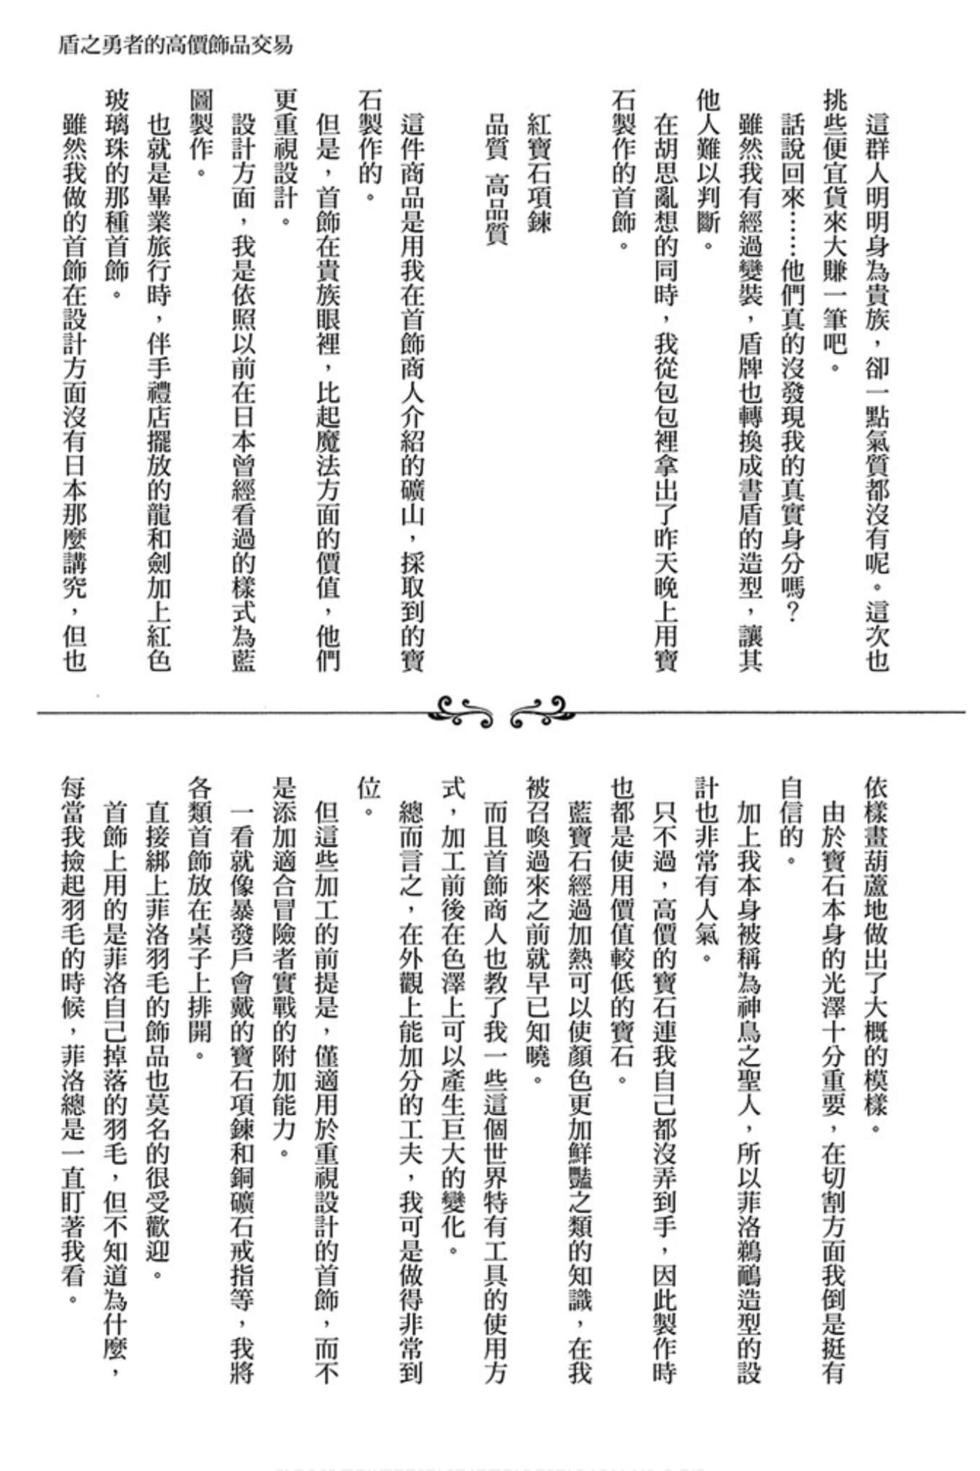 盾之勇者的高價飾品交易
這群人明明身為貴族，卻一點氣質都沒有呢。這次也
挑些便宜貨來大賺一筆吧。
話說回來……他們真的沒發現我的真實身分嗎？
雖然我有經過變裝，盾牌也轉換成書盾的造型，讓其
他人難以判斷。
在胡思亂想的同時，我從包包裡拿出了昨天晚上用寶
石製作的首飾。
紅寶石項鍊
品質 高品質
這件商品是用我在首飾商人介紹的礦山，採取到的寶
石製作的。
但是，首飾在貴族眼裡，比起魔法方面的價值，他們
更重視設計。
設計方面，我是依照以前在日本曾經看過的樣式為藍
圖製作。
也就是畢業旅行時，伴手禮店擺放的龍和劍加上紅色
玻璃珠的那種首飾。
雖然我做的首飾在設計方面沒有日本那麼講究，但也
依樣畫葫蘆地做出了大概的模樣。
由於寶石本身的光澤十分重要，在切割方面我倒是挺有
自信的。
加上我本身被稱為神鳥之聖人，所以菲洛鵜鶘造型的設
計也非常有人氣。
只不過，高價的寶石連我自己都沒弄到手，因此製作時
也都是使用價值較低的寶石。
藍寶石經過加熱可以使顏色更加鮮豔之類的知識，在我
被召喚過來之前就早已知曉。
而且首飾商人也教了我一些這個世界特有工具的使用方
式，加工前後在色澤上可以產生巨大的變化。
總而言之，在外觀上能加分的工夫，我可是做得非常到
位。
但這些加工的前提是，僅適用於重視設計的首飾，而不
是添加適合冒險者實戰的附加能力。
一看就像暴發戶會戴的寶石項鍊和銅礦石戒指等，我將
各類首飾放在桌子上排開。
直接綁上菲洛羽毛的飾品也莫名的很受歡迎。
首飾上用的是菲洛自己掉落的羽毛，但不知道為什麼，
每當我撿起羽毛的時候，菲洛總是一直盯著我看。